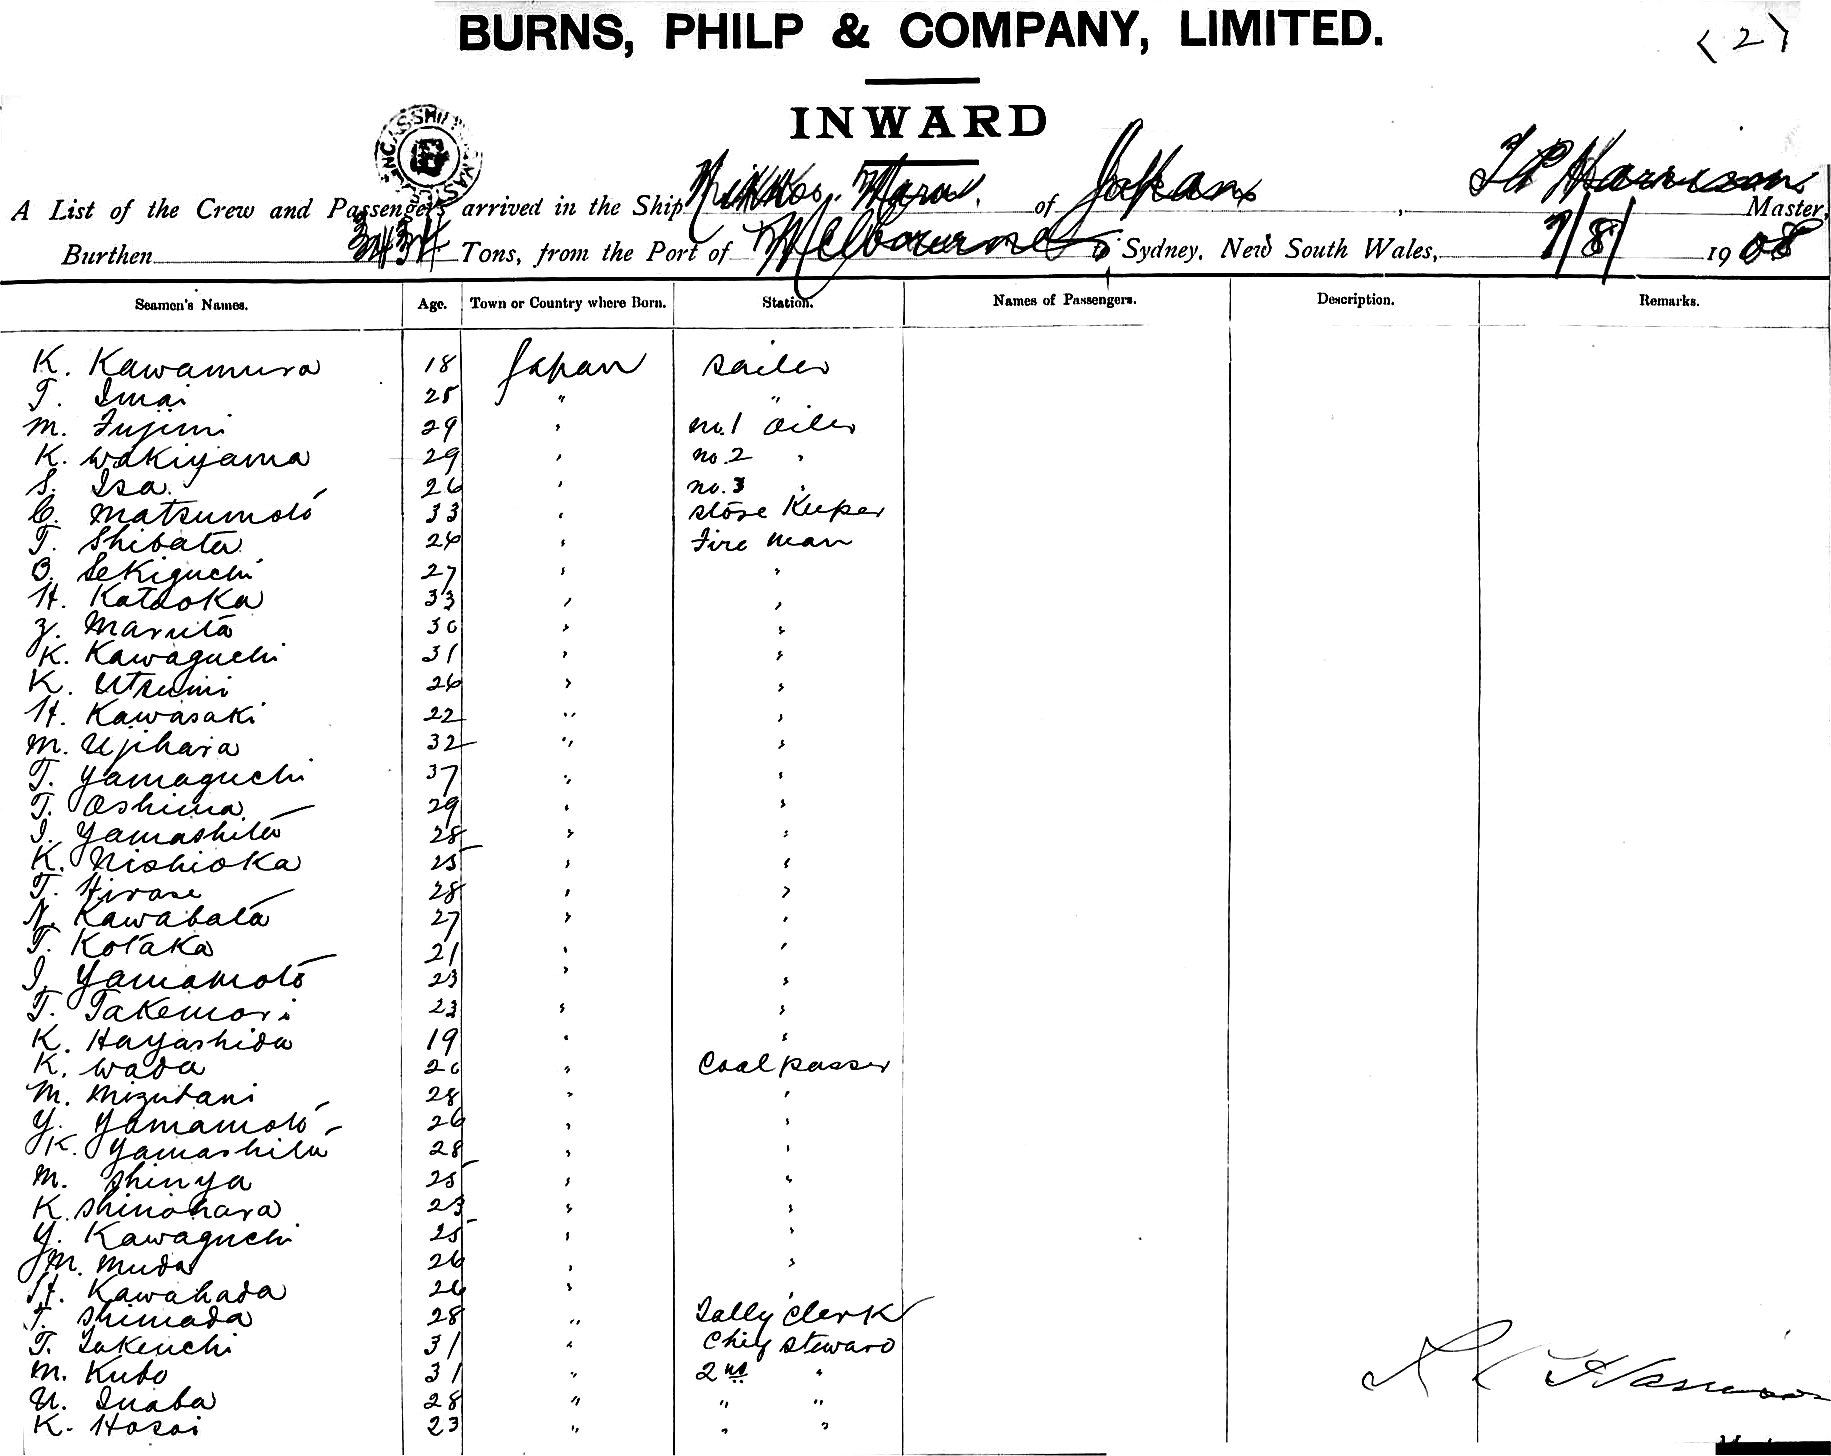 BURNS, PHILP & COMPANY, LIMITED.
(2)
INWARD
A List of the Crew and Passengers arrived in the Ship Nikko Maru of Japan, Harrison Master,
Burthen 3434 Tons, from the Port of Melbourne to Sydney, New South Wales, 7/8/ 1908
Seamen's Names. Age. Town or Country where Born. Station. Names of Passengers. Description. Remarks.
K. Kawamura 18 Japan sailer
T. Imai 25 " "
M. Fujimi 29 " no.1 oiler
K. Wakiyama 29 " no.2 "
S. Isa. 26 " no.3 "
C. Matsumoto 33 " store Keeper
T. Shibata 26 " Fire man
O. Sekiguchi 27 " "
H. Kataoka 33 " "
Z. Maruta 30 " "
K. Kawaguchi 31 " "
K. Utsumi 26 " "
H. Kawasaki 22 " "
M. Ujihara 32 " "
T. Yamaguchi 37 " "
T. Oshima 29 " "
I. Yamashita 28 " "
K. Nishioka 25 " "
T. Hirase 28 " "
N. Kawabata 27 " "
T. Kotaka 21 " "
I. Yamamoto 23 " "
T. Takemori 23 " "
K. Hayashida 19 " "
K. Wada 20 " Coal passer
M. Mizutani 28 " "
Y. Yamamoto 26 " "
K. Yamashita 28 " "
M. Shinya 25 " "
K. Shinohara 23 " "
Y. Kawaguchi 25 " "
M. Muda 26 " "
H. Kawahada 26 " "
T. Shimada 28 " Tally Clerk
T. Takeuchi 31 " Chief steward
M. Kudo 31 " 2nd "
U. Inaba 28 " " "
K. Hosoi 23 " " "
Harrison